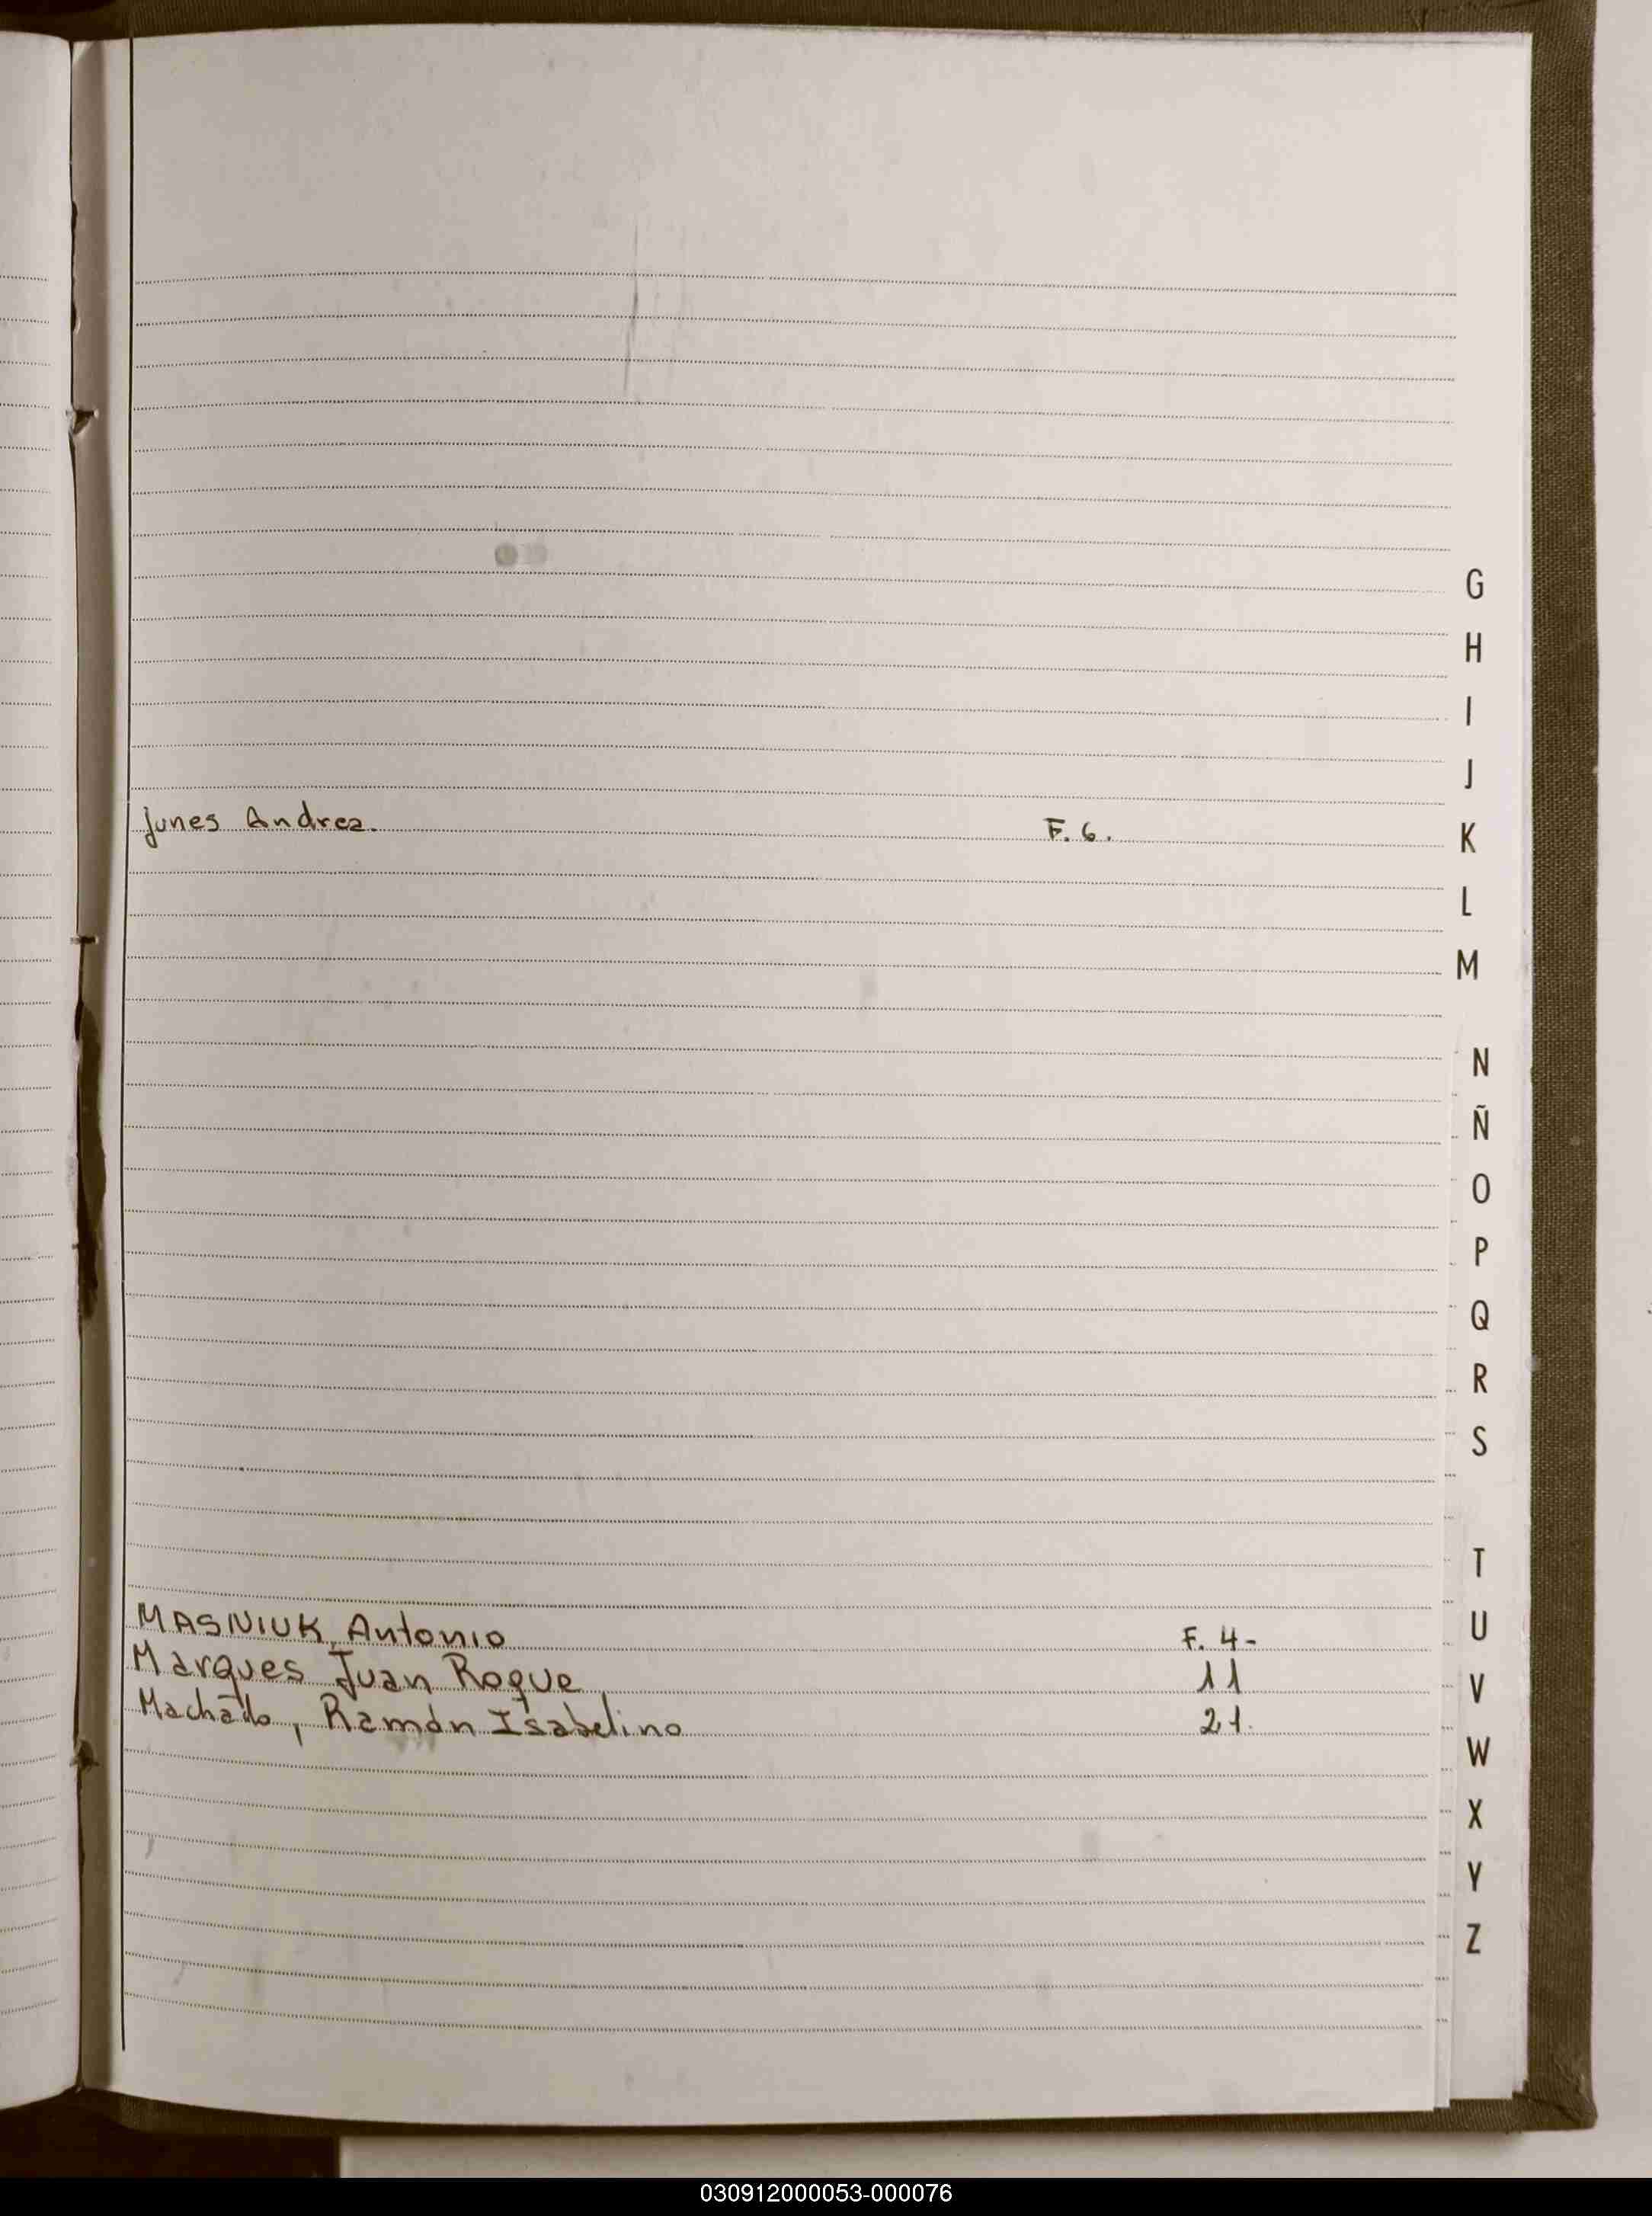 G
H
I
J
Junes Andrea. F. 6.
K
L
M
N
Ñ
O
P
Q
R
S
T
MASNIUK, Antonio F. 4-
U
Marques Juan Roque 11
V
Machado, Ramón Isabelino 21.
W
X
Y
Z
030912000053-000076